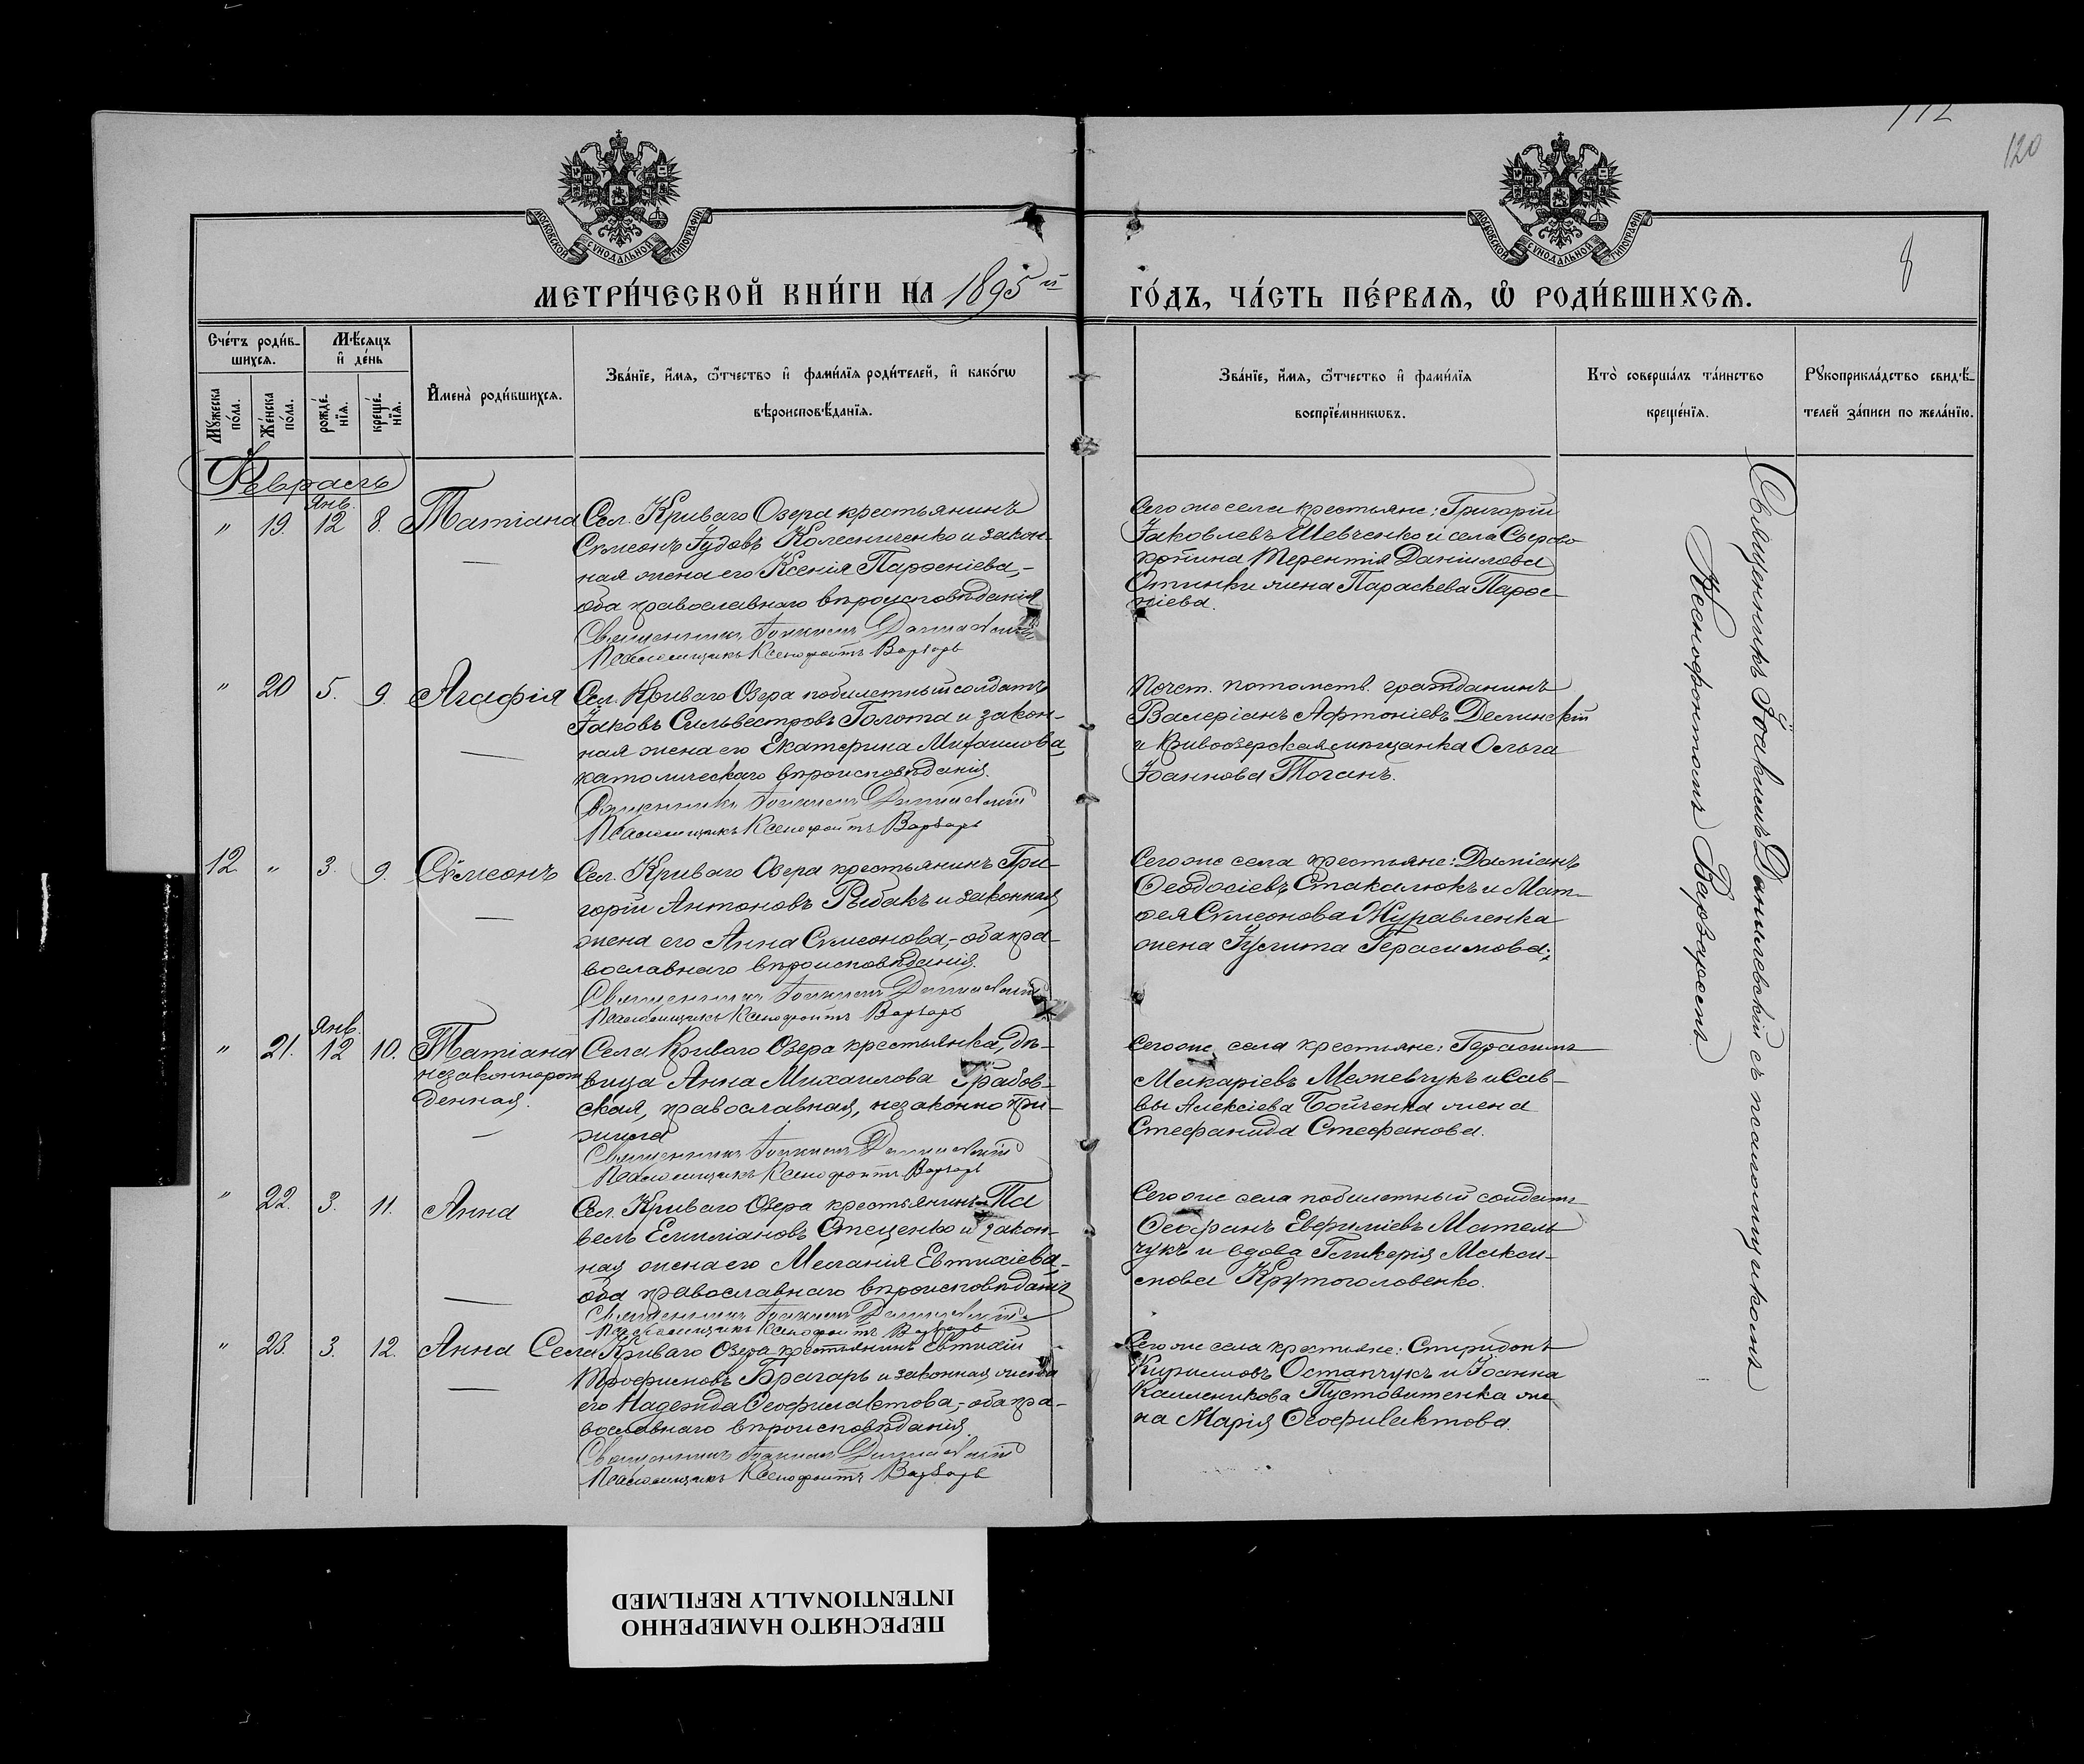 112
120
8
МОСКОВСКОЙ СУНОДАЛЬНОЙ ТИПОГРАФІИ
МОСКОВСКОЙ СУНОДАЛЬНОЙ ТИПОГРАФІИ
МЕТРИ́ЧЕСКОЙ КНИ́ГИ НА 1895 й
ГО́ДЪ, ЧА́СТЬ ПЕ́РВАѦ, Ѡ҆ РОДИ́ВШИХСѦ.
Сче́тъ роди́в-
шихсѧ.
Мѣ́сѧцъ
и҆ де́нь
Мꙋжеска по́ла.
Же́нска по́ла.
рожде́нїѧ.
креще́нїѧ.
И҆мена̀ роди́вшихсѧ.
Зва́нїе, и҆́мѧ, ѻ҆́тчество и҆ фами́лїѧ роди́телей, и҆ како́гѡ
вѣроисповѣ́данїѧ.
Зва́нїе, и҆́мѧ, ѻ҆́тчество и҆ фами́лїѧ
воспрїе́мникѡвъ.
Кто̀ соверша́лъ та́инство
креще́нїѧ.
Рꙋкоприкла́дство свидѣ́-
телей за́писи по жела́нїю.
Февраль
Янв.
" 19. 12 8. Татіана
Сел. Криваго Озера крестьянинъ
Сѵмеонъ Іудовъ Колесниченко и закон-
ная жена его Ксенія Парѳеніева,-
оба православнаго вѣроисповѣданія
Священникъ Іоакимъ Данилевскій
Псаломщикъ Ксенофонтъ Варварь
Сего же села крестьяне: Григорій
Іаковлевъ Шевченко и села Сырово
Терентія Даніилова
жена Параскева Парѳе-
ніева.
" 20 5. 9. Агафія
Сел. Криваго Озера побилетный солдатъ
Іаковъ Сильвестровъ Голота и закон-
ная жена его Екатерина Михаилова
католическаго вѣроисповѣданія.
Священникъ Іоакимъ Данилевскій
Псаломщикъ Ксенофонтъ Варварь
Почет. потомств. гражданинъ
Валеріанъ Афтоніевъ
и Кривоозерская мѣщанка Ольга
Іоаннова
12 " 3. 9. Сѵмеонъ
Сел. Криваго Озера крестьянинъ Гри-
горій Антоновъ Рыбакъ и законная
жена его Анна Сѵмеонова,- оба пра-
вославнаго вѣроисповѣданія.
Священникъ Іоакимъ Данилевскій
Псаломщикъ Ксенофонтъ Варварь
Сего же села крестьяне: Даміанъ
Ѳеодосіевъ Стакалюкъ и Мат-
ѳея Сѵмеонова Журавленка
жена Іустина Герасимова.
Янв.
" 21. 12 10. Татіана
незаконнорож
денная.
Села Криваго Озера крестьянка, дѣ-
вица Анна Михаилова Грабов-
ская, православная, незаконно при-
жила
Священникъ Іоакимъ Данилевскій
Псаломщикъ Ксенофонтъ Варварь
Сего же села крестьяне: Герасимъ
Макаріевъ Межевчукъ и Сав-
вы Алексіева Бойченка жена
Стефанида Стефанова.
" 22. 3. 11. Анна
Сел. Криваго Озера крестьянинъ Па
велъ Емиліановъ Стеценко и закон-
ная жена его Меланія Евтихіева-
оба православнаго вѣроисповѣданія
Священникъ Іоакимъ Данилевскій
Псаломщикъ Ксенофонтъ Варварь
Сего же села побилетный солдатъ
Ѳеофанъ Евфиміевъ Мател
чукъ и вдова Гликерія Макси-
мова Крутоголовенко.
" 23. 3. 12. Анна
Села Криваго Озера крестьянинъ Евтихій
Трофимовъ Брагарь и законная жена
его Надежда Ѳеофилактова,- оба пра-
вославнаго вѣроисповѣданія.
Священникъ Іоакимъ Данилевскій
Псаломщикъ Ксенофонтъ Варварь
Сего же села крестьяне: Спиридонъ
Кирилловъ Остапчукъ и Іоанна
Каленикова Пустовитенка же
на Марія Ѳеофилактова.
Священникъ Іоакимъ Данилевскій съ псаломщикомъ
Ксенофонтомъ Варваремъ.
ПЕРЕСНЯТО НАМЕРЕННО
INTENTIONALLY REFILMED